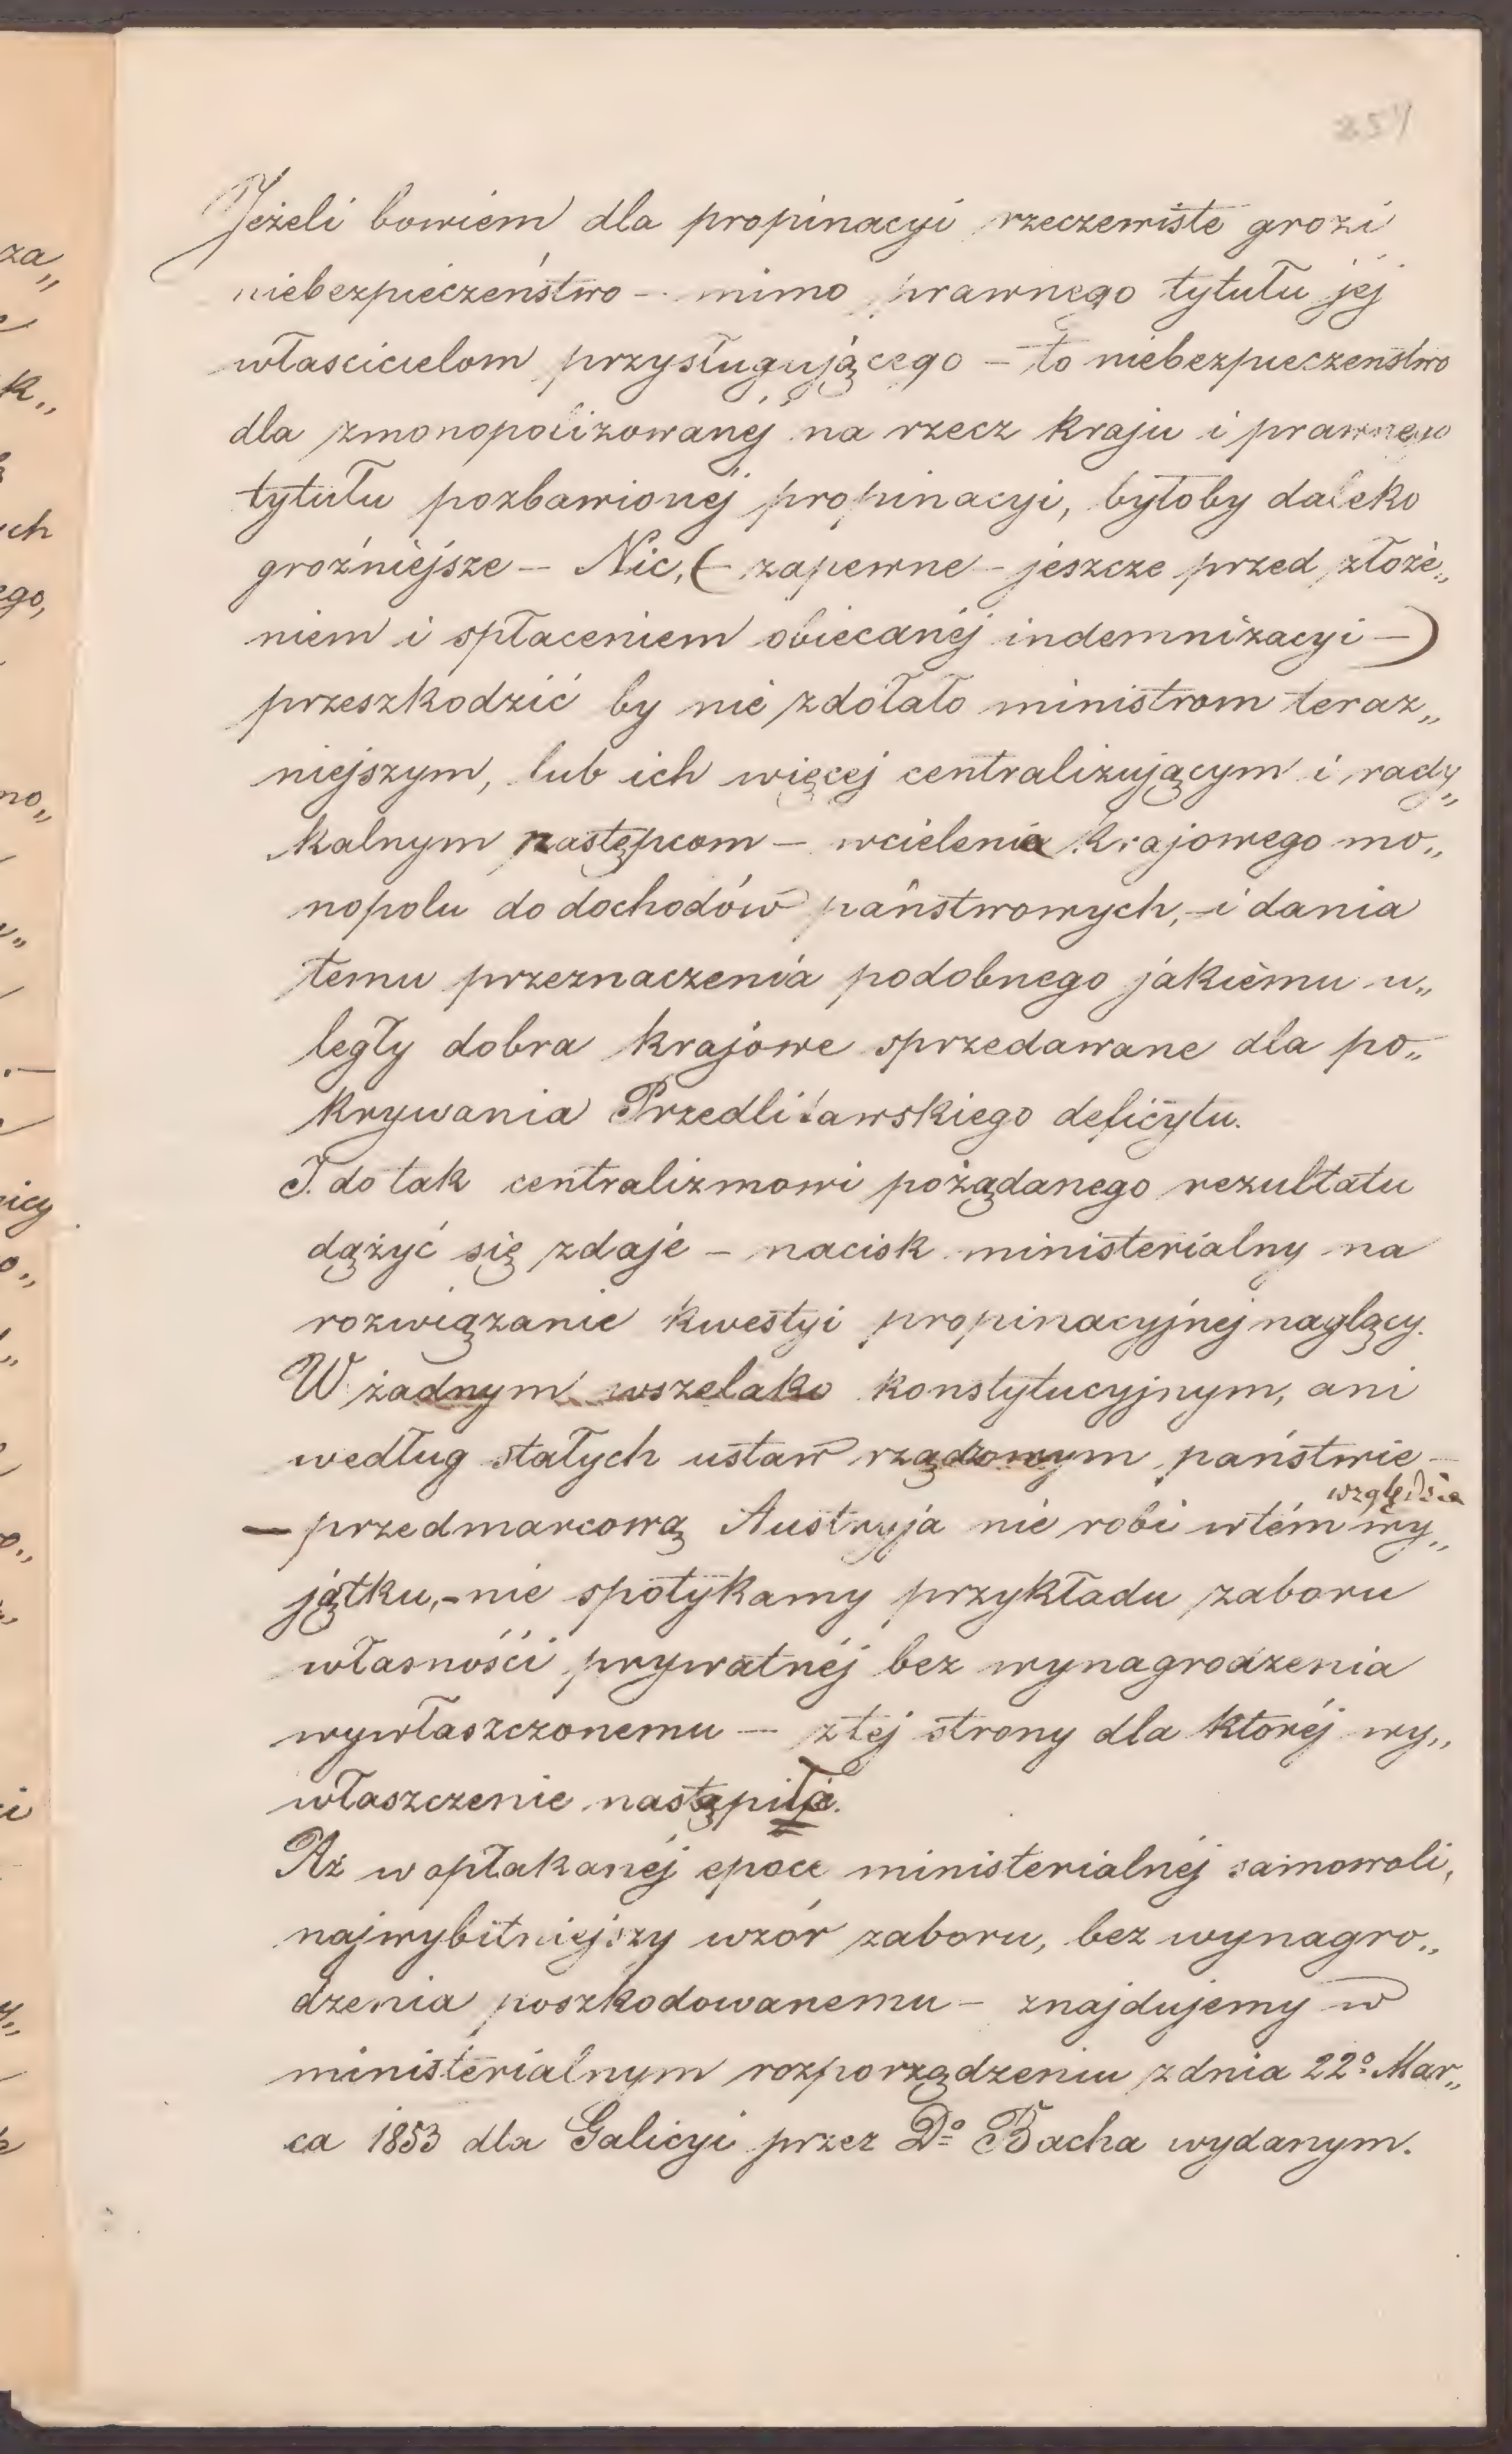 254
Jeżeli bowiem dla propinacyi rzeczewiste grozi
niebezpieczeństwo — mimo prawnego tytułu jéj
włascicielom przysługującego — to niebezpieczenstwo
dla zmonopolizowanéj na rzecz kraju i prawnego
tytułu pozbawionéj propinacyi, byłoby daleko
groźniejsze — Nic, (— zapewne — jeszcze przed złoże„
niem i spłaceniem obiecanéj indemnizacyi —)
przeszkodzić by nie zdołało ministrom teraz„
niejszym, lub ich więcej centralizującym i rady„
kalnym następcom — wcielenia krajowego mo„
nopolu do dochodów państwowych, — i dania
temu przeznaczenia podobnego jakiemu u„
legły dobra krajowe sprzedawane dla po„
krywania Przedlitawskiego deficytu.
I do tak centralizmowi pożądanego rezultatu
dążyć się zdaje — nacisk ministerialny na
rozwiązanie kwestyi propinacyjnej naglący.
W żadnym wszelako konstytucyjnym, ani
według stałych ustaw rządzonym państwie —
względzie
— przedmarcową Austryja nie robi w tém wy„
jątku, — nie spotykamy przykładu zaboru
własnośći prywatnéj bez wynagrodzenia
wywłaszczonemu — z téj strony dla któréj wy„
właszczenie nastąpiło.
Aż w opłakanéj epoce ministerialnéj samowoli,
najwybitniejszy wzór zaboru, bez wynagro„
dzenia poszkodowanemu — znajdujemy w
ministerialnym rozporządzeniu z dnia 22º Mar„
ca 1853 dla Galicyi przez Dº Bacha wydanym.
za„
k„
ch
ego,
no„
nicy
o„